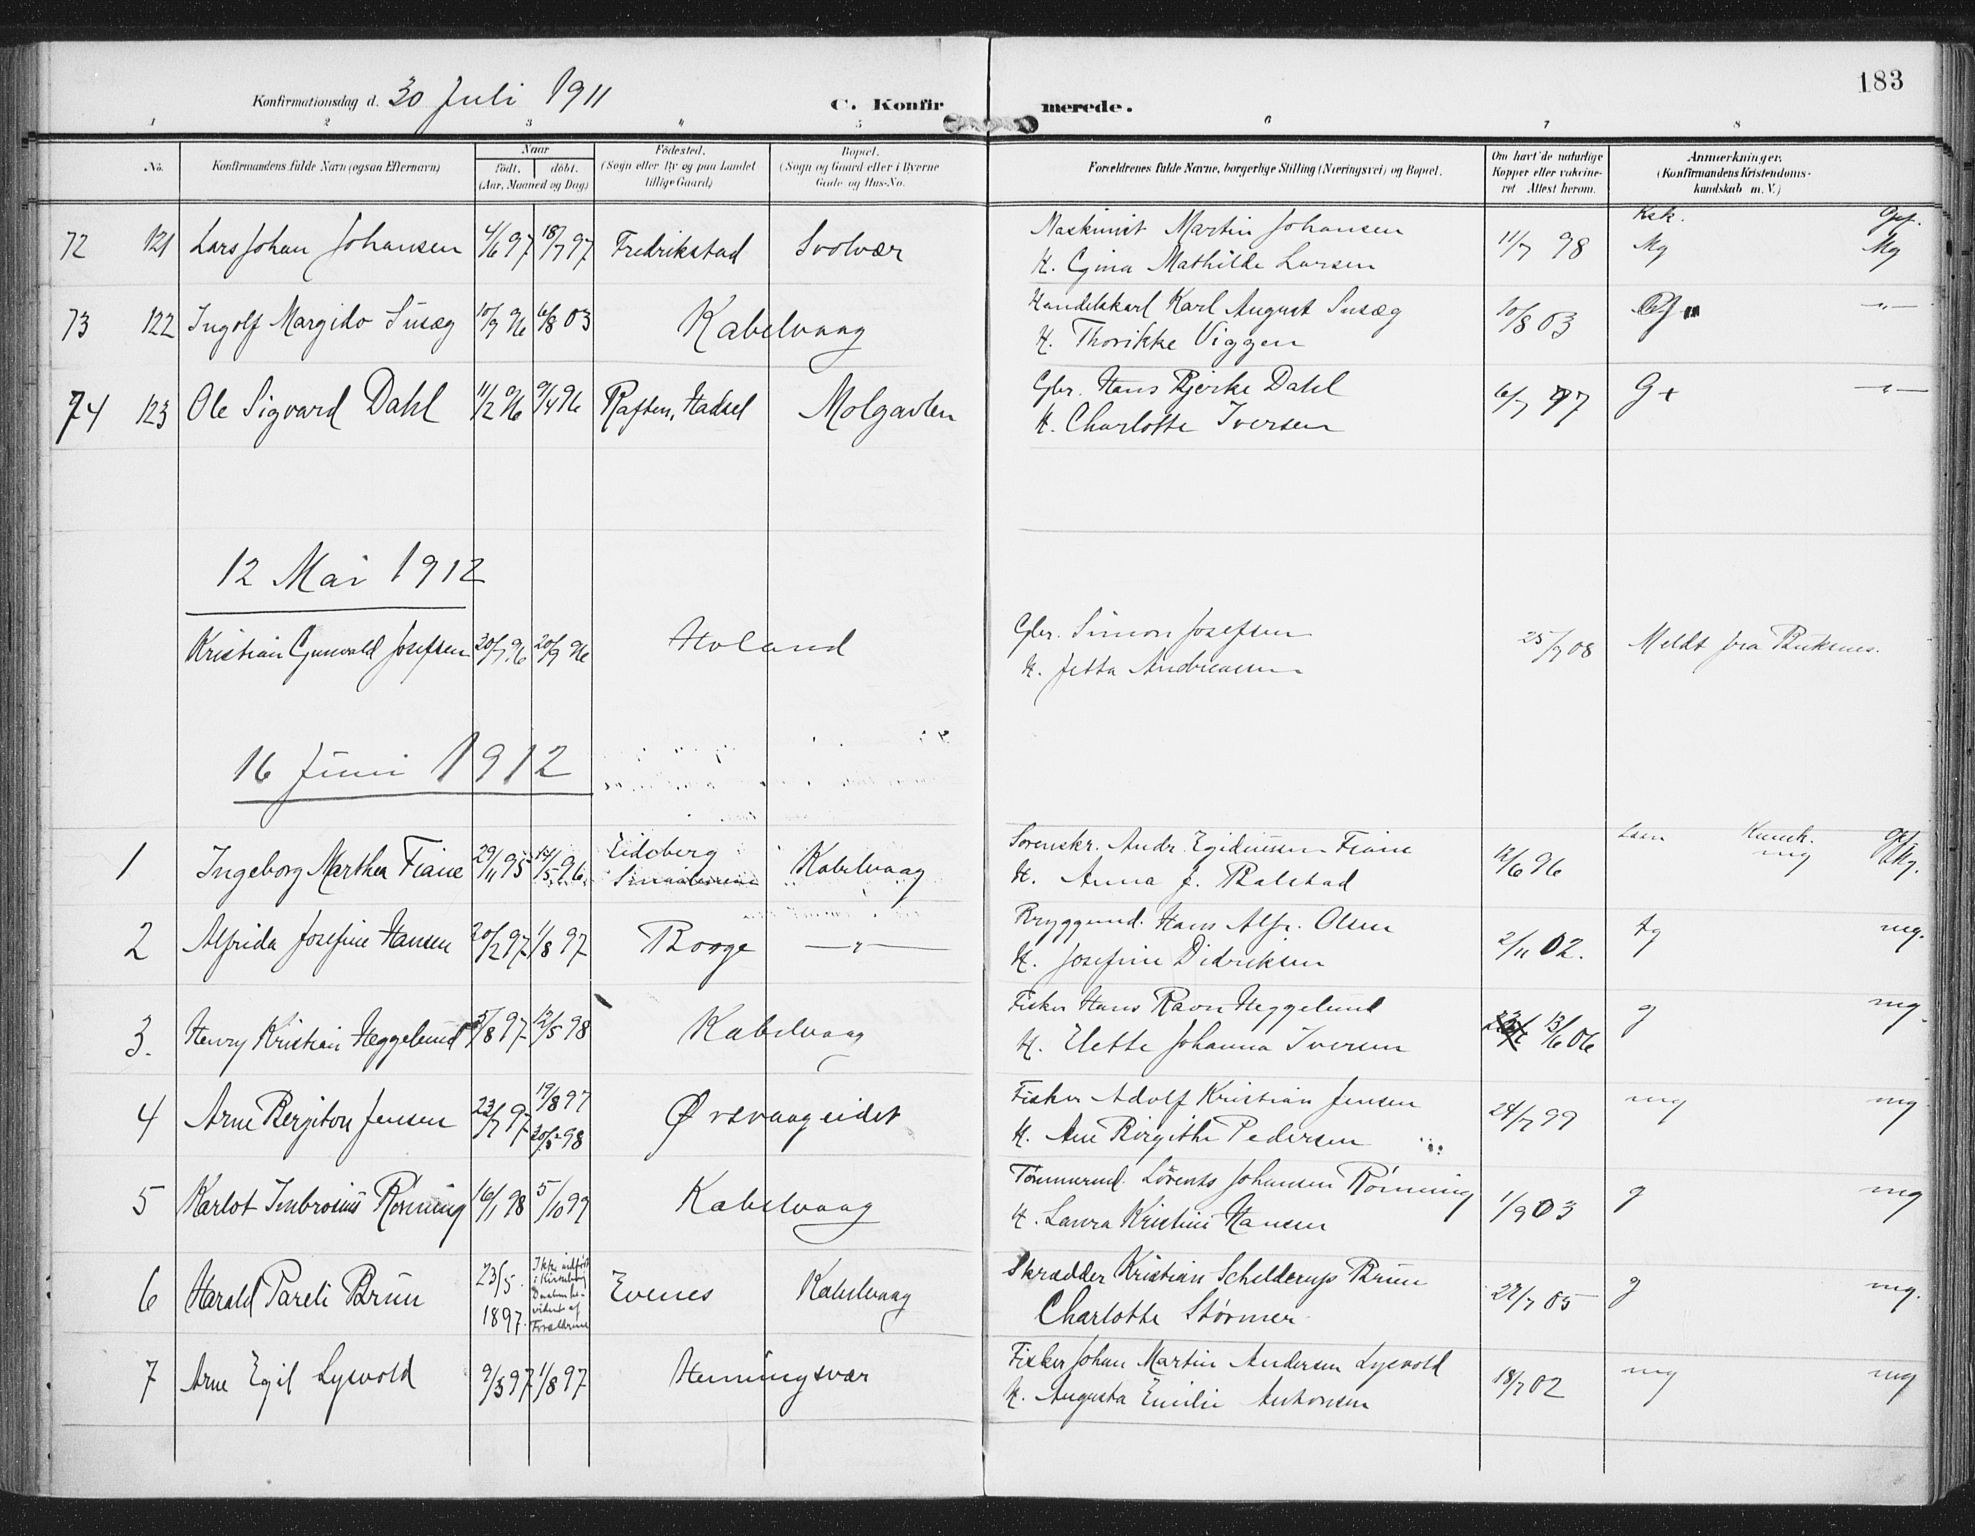 183
Konfirmationsdag d. 30 Juli 1911 C. Konfirmerede.
1 2 3 4 5 6 7 8
No. Konfirmandens fulde Navn (ogsaa Efternavn) Naar født. døbt. (Aar, Maaned og Dag) Fødested. (Sogn eller By og paa Landet tillige Gaard) Bopæl. (Sogn og Gaard eller i Byerne Gade og Hus-No. Forældrenes fulde Navne, borgerlige Stilling (Næringsvei) og Bopæl. Om havt de naturlige Kopper eller vakcineret. Attest herom. Anmærkninger. (Konfirmandens Kristendomskundskab m. V.)
Ksk. Opf.
72 121 Lars Johan Johansen 4/6 97 18/7 97 Fredrikstad Svolvær Maskinist Martin Johansen 11/7 98 Mg Mg
H. Gina Mathilde Larsen
73 122 Ingolf Margido Susæg 10/9 96 6/8 03 Kabelvaag Handelskarl Karl August Susæg 10/8 03 —"—
H. Thorikke Viggen
74 123 Ole Sigvard Dahl 11/2 96 9/4 96 Raften, Hadsel Molgavlen Gbr. Hans Bjerke Dahl 6/7 97 G+ —"—
H. Charlotte Iversen
12 Mai 1912
Kristian Gunvald Josefsen 20/7 96 20/9 96 Holand Gbr. Simon Josefsen 25/7 08 Meldt fra Buksnes.
H. Jetta Andreassen
16 Juni 1912
Kunsk. Opf.
1 Ingeborg Marthea Fiane 29/11 95 14/5 96 Eidsberg Kabelvaag Sorenskr. Andr. Egidiussen Fiane 12/6 96 mg Mg.
H. Anna J. Balstad
2 Alfrida Josefine Hansen 20/2 97 1/8 97 Borge —"— Bryggemd. Hans Alfr. Olsen 2/11 02. tg mg.
H. Josefine Didriksen
3. Henry Kristian Heggelund 5/8 97 12/5 98 Kabelvaag Fisker Hans Ravn Heggelund 13/6 06 g mg.
H. Elette Johanna Iversen
4 Arne Bergiton Jensen 23/7 97 19/8 97 Ørsvaageidet Fisker Adolf Kristian Jensen 24/7 99 mg mg
20/2 98 H. Ane Birgithe Pedersen
5 Karlot Imbrosius Rønning 16/1 98 5/10 99 Kabelvaag Tømmermd. Lorents Johansen Rønning 1/9 03 g mg
H. Laura Kristine Hansen
6 Harald Pareli Brun 23/5. 1897. Ikke indført i Kirkebog Daaben bevidnet af Forældrene Evenes Kabelvaag Skrædder Kristian Schelderup Brun 22/7 05 g mg.
Charlotte Størmer
7 Arne Egil Lysvold 9/3 97 1/8 97 Henningsvær Fisker Johan Martin Andersen Lysvold 18/7 02 mg mg
H. Augusta Emilie Antonsen